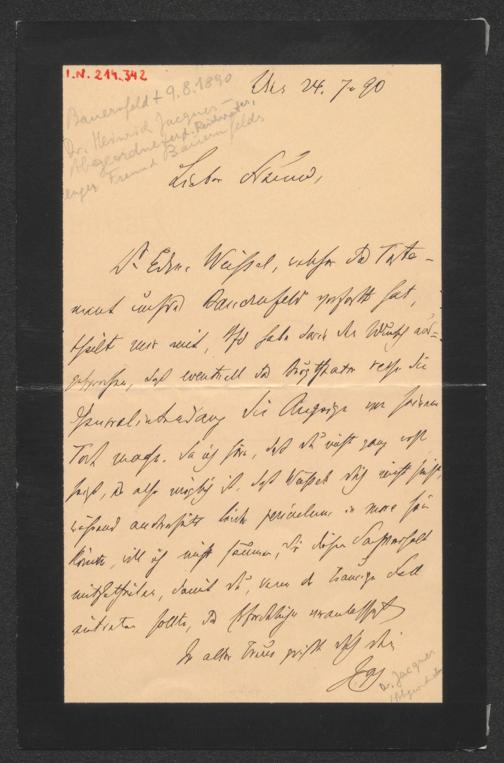 I.N. 214.342
Bauernfeld † 9.8.1890
Dr. Heinrich Jacques –
Abgeordneter
enger Freund Bauernfelds
24. 7. 90
Lieber Freund,
Dr. Edm. Weissel, welcher das Testa-
ment unseres Bauernfeld verfaßt hat,
theilt mir mit, habe darin den Wunsch aus-
gesprochen, daß eventuell das Burgtheater resp. die
Generalintendanz die Anzeige von seinem
Tod mache. Da ich höre, daß du nicht ganz wohl
bist, es also möglich ist, daß Weissel dich nicht
während anderseits leicht periculum in mora sein
könnte, will ich nicht säumen, dir diesen Sachverhalt
mitzutheilen, damit du, wenn der traurige Fall
eintreten sollte, das Erforderliche veranlassest
In alter Treue grüßt dich dein
Jqs
Dr. Jacques